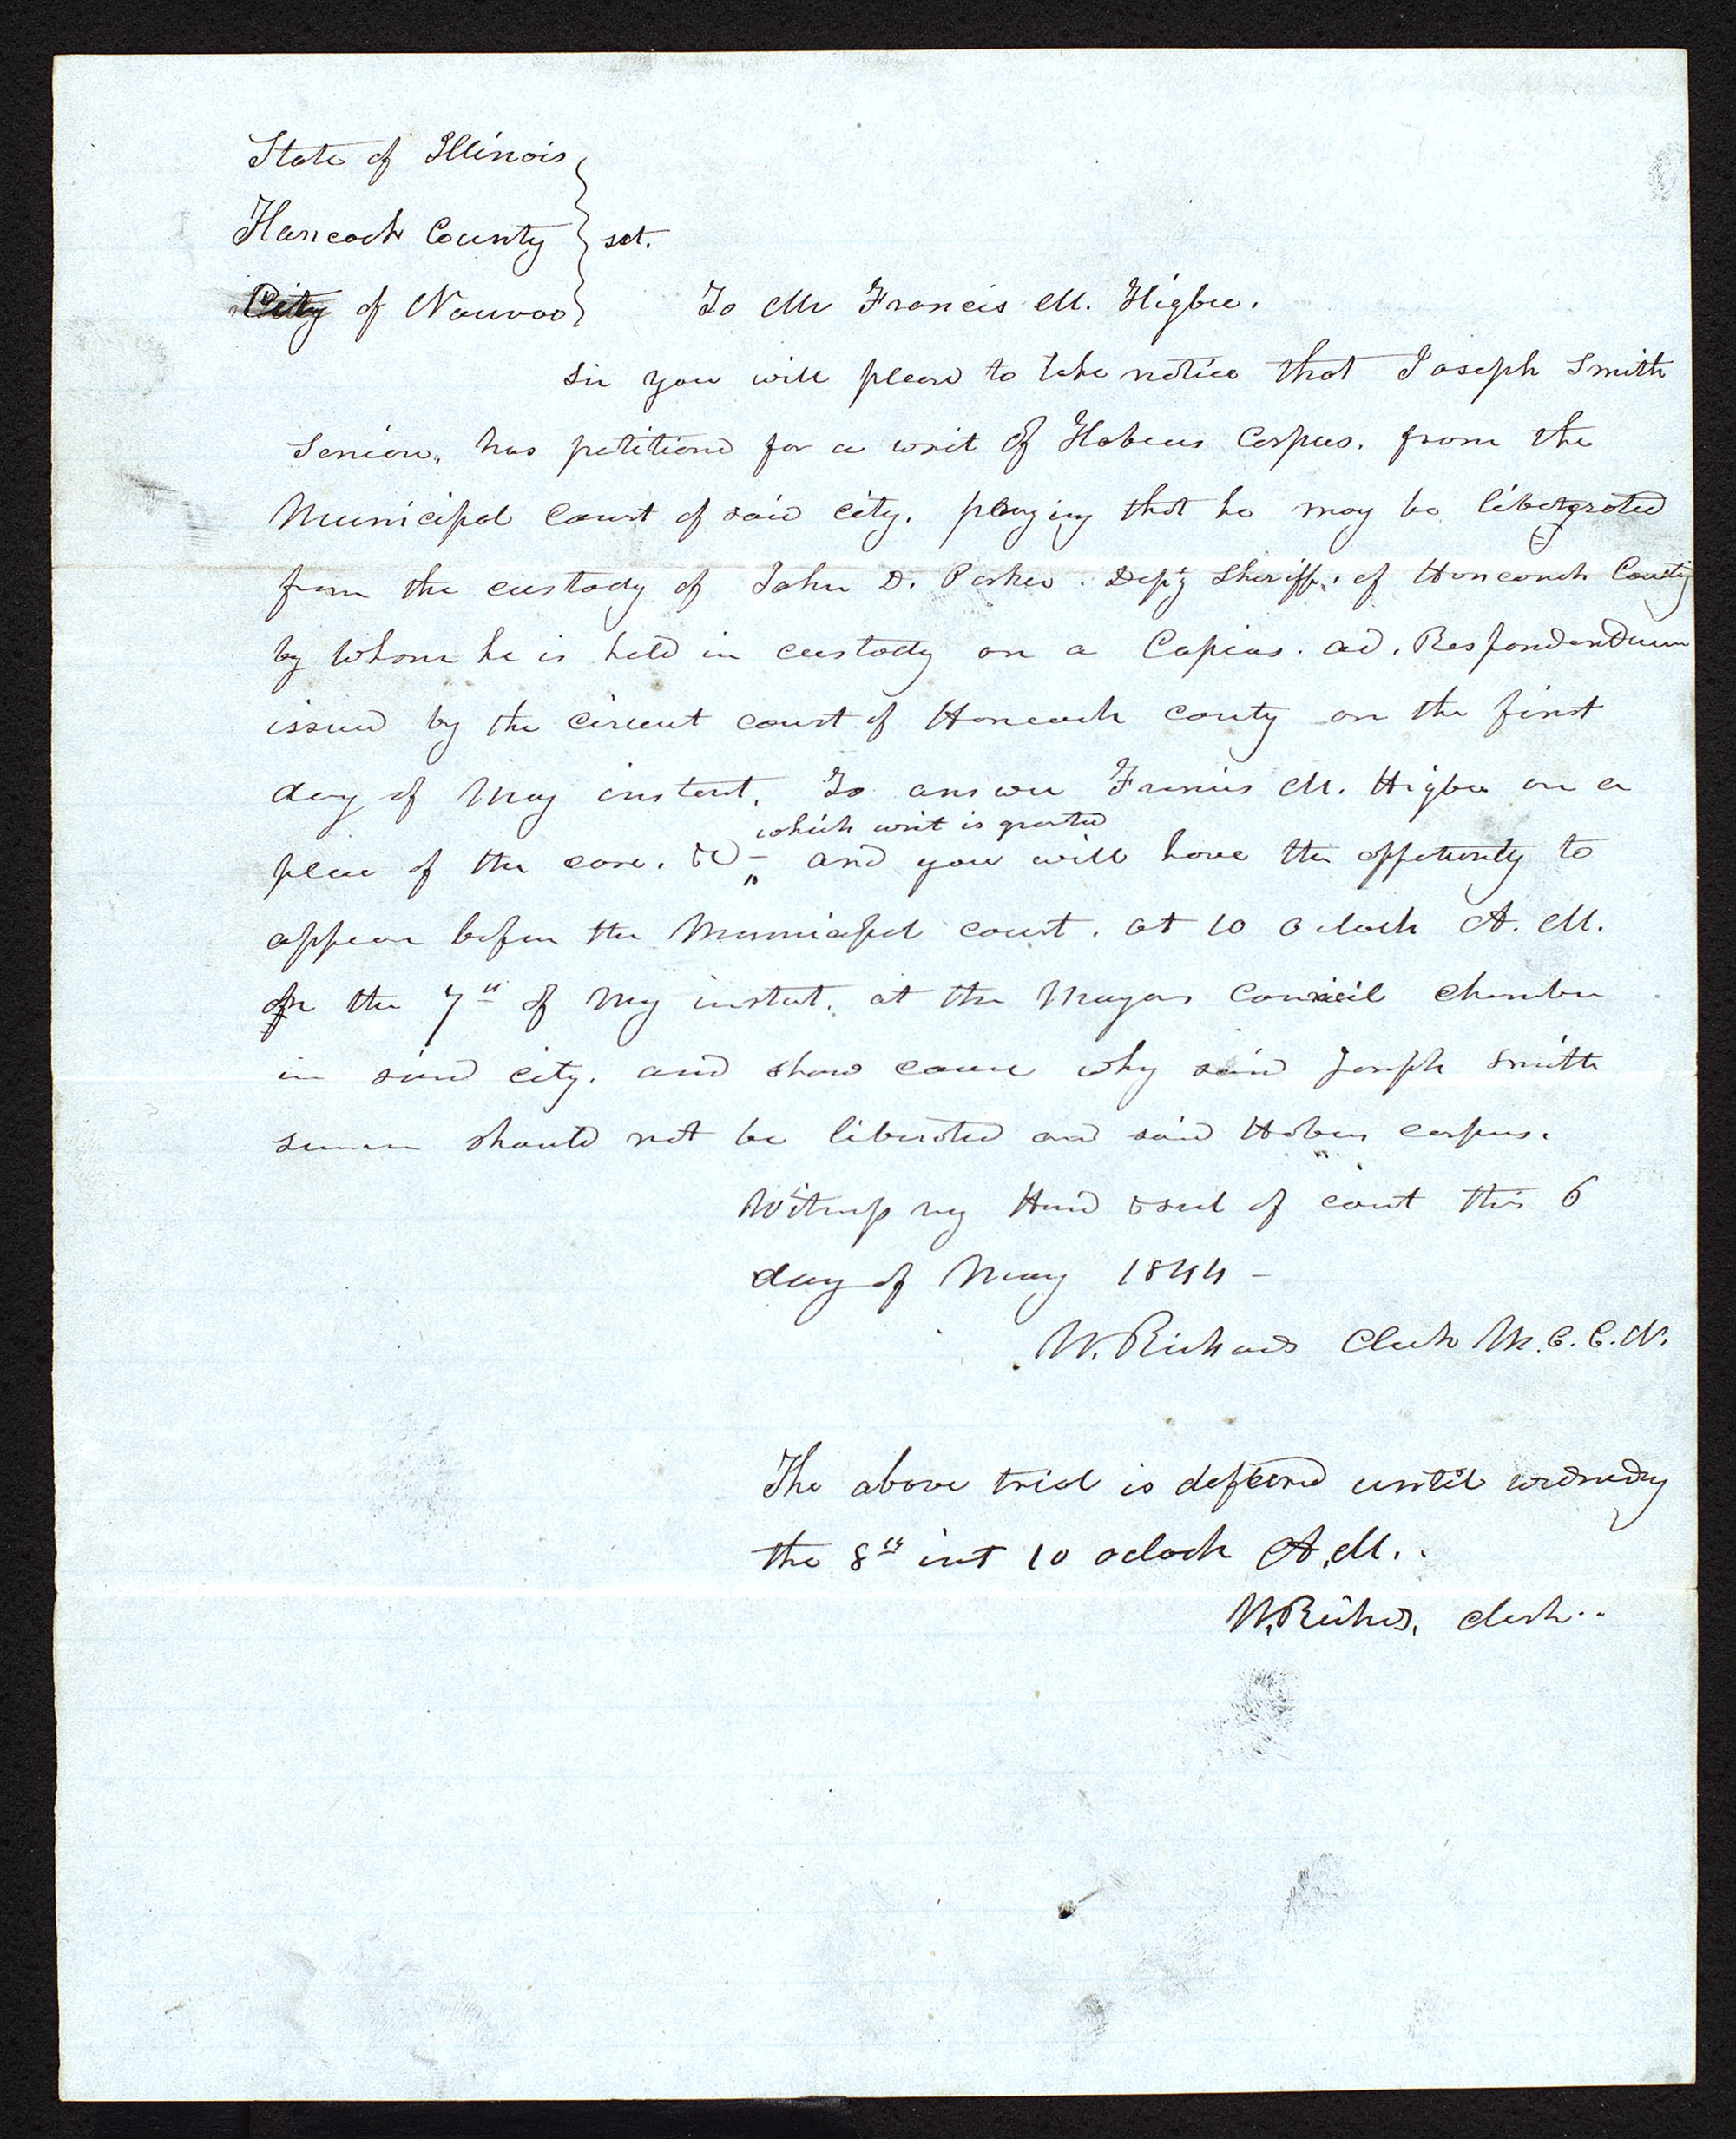 State of Illinois
Hancock County } sct.
City of Nauvoo
To Mr Francis M. Higbee.
Sir you will please to take notice that Joseph Smith
Senior, has petitiond for a writ of Habeus Corpus. from the
Municipal Court of said city. praying that he may be liberated
from the custody of John D. Parker. Dep'y Sheriff. of Hancock County
by whom he is held in custody on a Capias. ad. Respondendum
issued by the circuit court of Hancock couty on the first
day of May instant, To answer Francis M. Higbee on a
which writ is granted
plea of the case. &c – and you will have the oppertunity to
appear before the Municipal court. at 10 o clock A. M.
on the 7th of May instant. at the Mayors Council chamber
in said city. and show cause why said Joseph Smith
senior should not be liberated on said Habeus corpus.
Witness my Hand & seal of court this 6
day of May 1844 –
W. Richards Clerk M. C. C. N.
The above trial is defered until wednesdy
the 8th inst 10 oclock A. M.
W. Richds. clerk